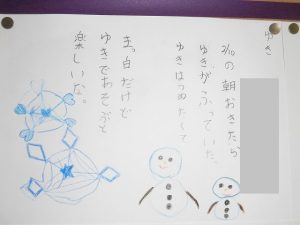 ゆき
2/10の朝おきたら
ゆきがふっていた。
ゆきはつめたくて
まっ白だけど
ゆきであそぶと
楽しいな。